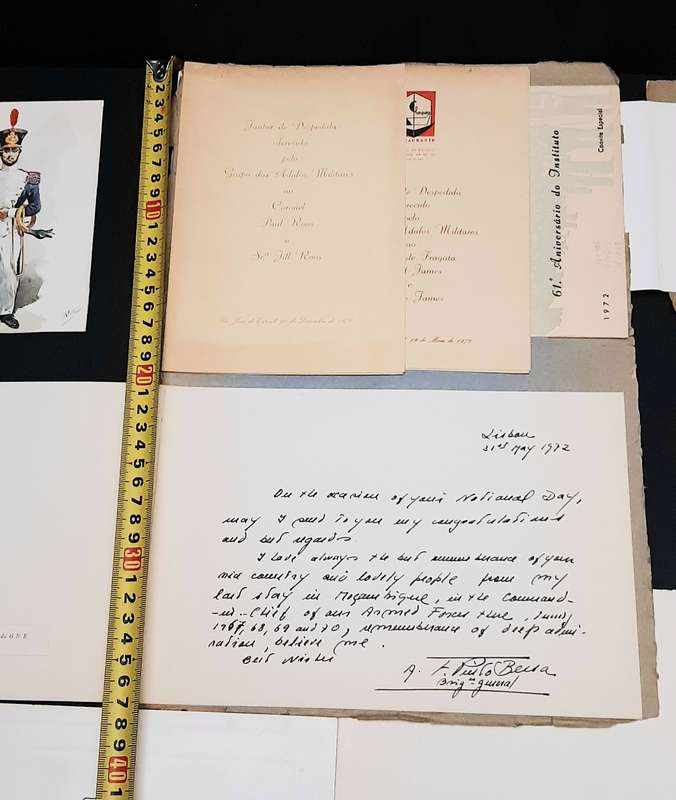 Jantar de Despedida
oferecido
pelo
Grupo dos Adidos Militares
ao
Coronel
Paul Roos
e
Srª Jill Roos
RESTAURANTE
de Despedida
oferecido
pelo
Adidos Militares
ao
de Fragata
James
e
James
de Maio de 1972
61.º Aniversário do Instituto
Convite Especial
1972
Lisbon
31st May 1972
On the occasion of your National Day,
may I send to you my congratulations
and best regards.
I have always the best remembrance of your
nice country and lovely people from my
last stay in Moçambique, in the Command-
-in-Chief of our Armed Forces there, during
1967, 68, 69 and 70, remembrance of deep admi-
ration, believe me.
Best Wishes
A. F. Pinto Bessa
Brign general
do G.N.R.
2 3 4 5 6 7 8 9 10 1 2 3 4 5 6 7 8 9 20 1 2 3 4 5 6 7 8 9 30 1 2 3 4 5 6 7 8 9 40